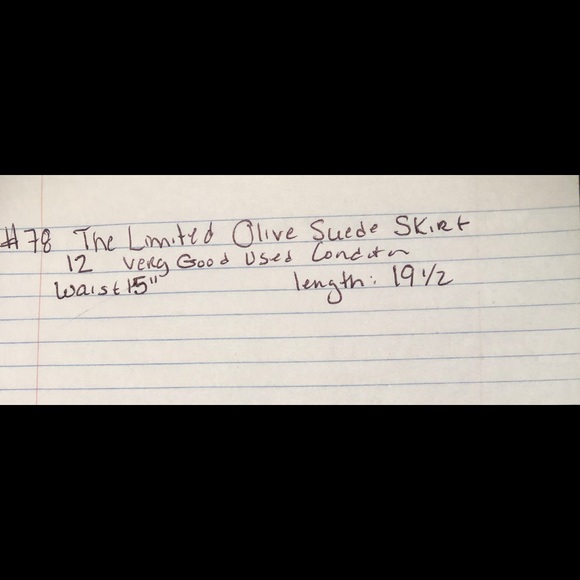 #78 The Limited Olive Suede Skirt
12 Very Good Used Conditn
Waist 15"
length: 19 1/2